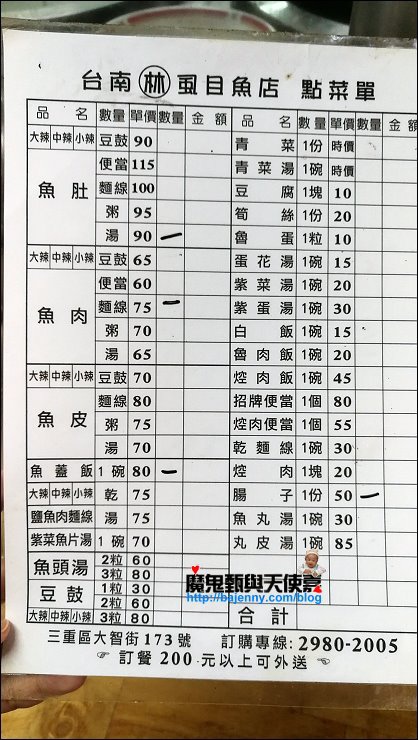 台南 林 虱目魚店 點菜單
品名 數量 單價 數量 金額
大辣 中辣 小辣 豆鼓 90
魚肚
便當 115
麵線 100
粥 95
湯 90 一
大辣 中辣 小辣 豆鼓 65
魚肉
便當 60
麵線 75 一
粥 70
湯 65
大辣 中辣 小辣 豆鼓 70
魚皮
麵線 80
粥 75
湯 70
魚蓋飯 1碗 80 一
大辣 中辣 小辣 乾 75
鹽魚肉麵線 湯 75
紫菜魚片湯 1碗 70
魚頭湯 2粒 60
3粒 80
豆鼓 1粒 30
2粒 60
大辣 中辣 小辣 3粒 80
品名 數量 單價 數量 金額
青菜 1份 時價
青菜湯 1碗 時價
豆腐 1塊 10
筍絲 1份 20
魯蛋 1粒 10
蛋花湯 1碗 15
紫菜湯 1碗 20
紫蛋湯 1碗 30
白飯 1碗 15
魯肉飯 1碗 20
焢肉飯 1碗 45
招牌便當 1個 80
焢肉便當 1個 55
乾麵線 1碗 30
焢肉 1塊 20
腸子 1份 50 一
魚丸湯 1碗 30
丸皮湯 1碗 85
魔鬼甄與天使嘉
http://bajenny.com/blog
合計
三重區大智街173號 訂購專線:2980-2005
訂餐200元以上可外送